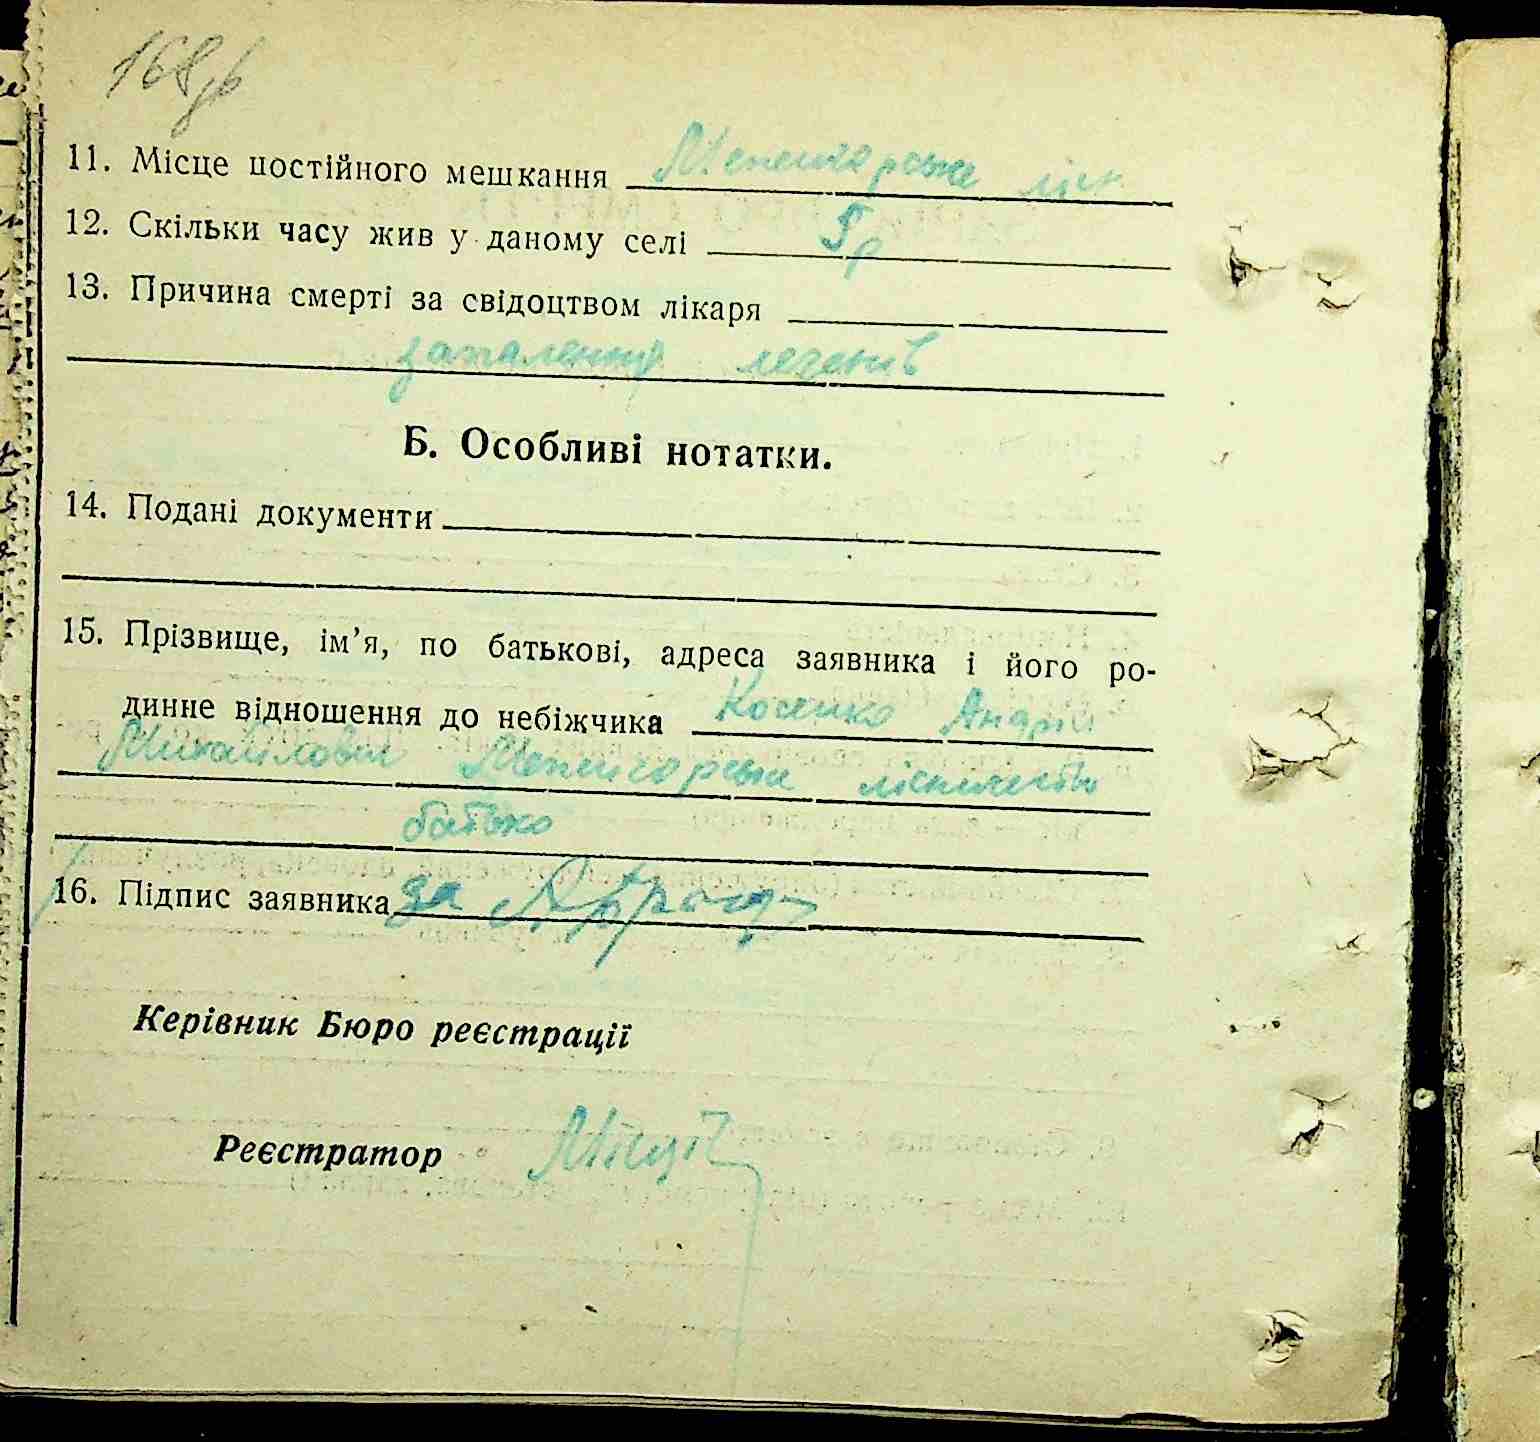 168зв
11. Місце постійного мешкання Межигорське ліс.
12. Скільки часу жив у даному селі 5 р
13. Причина смерті за свідоцтвом лікаря
запалення легенів
Б. Особливі нотатки.
14. Подані документи
15. Прізвище, ім’я, по батькові, адреса заявника і його ро-
динне відношення до небіжчика Косенко Андрій
Михайлович Межигорське лісництво
батько
16. Підпис заявника за
Керівник Бюро реєстрації
Реєстратор